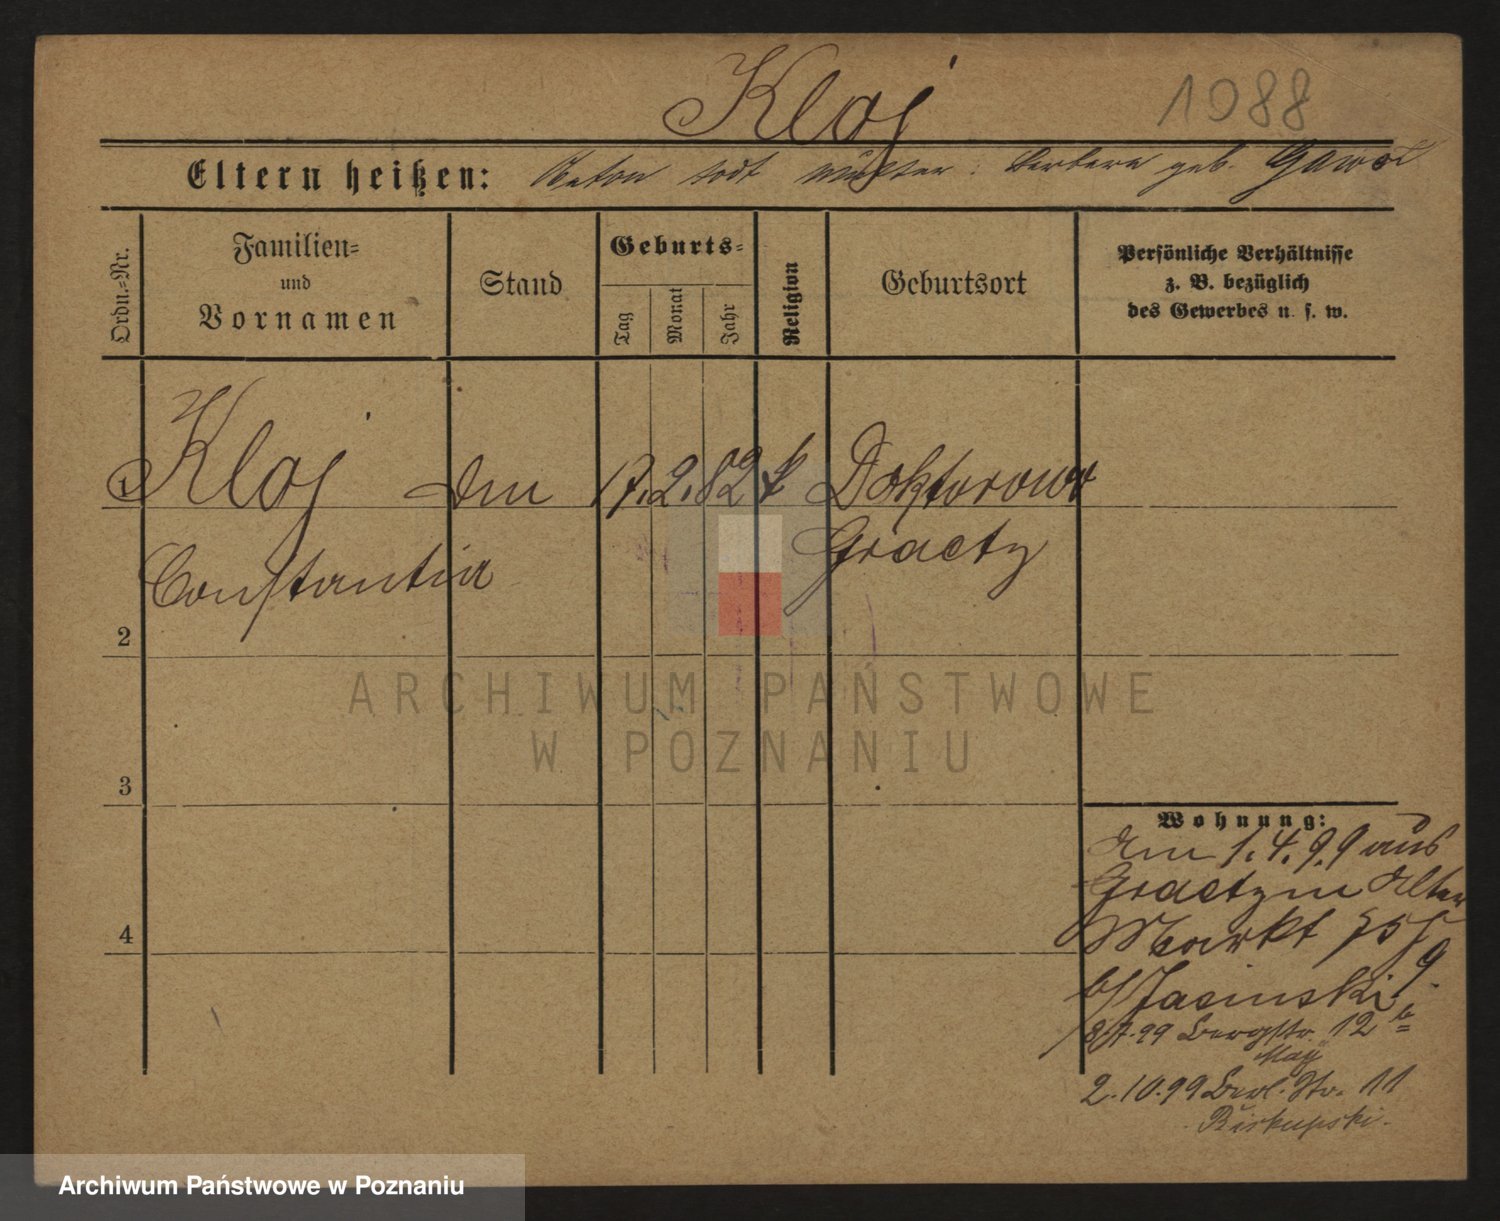 Kloj
1088
Eltern heißen: Anton todt Mutter: Barbara geb. Gawoł
Ordn.-Nr.
Familien-
und
Vornamen
Stand
Geburts-
Tag
Monat
Jahr
Religion
Geburtsort
Persönliche Verhältnisse
z. B. bezüglich
des Gewerbes u. s. w.
1 Kloj 17. 2. 82 k Doktorowo
Graetz
Constantia
2
3
4
Wohnung:
1. 4. 99 aus
Graetz in Alter
Markt
b/ Jasinski
99 Bergstr. 12 b
May
2. 10. 99 Berl. Str. 11
Biskupski.
ARCHIWUM PAŃSTWOWE
W POZNANIU
Archiwum Państwowe w Poznaniu